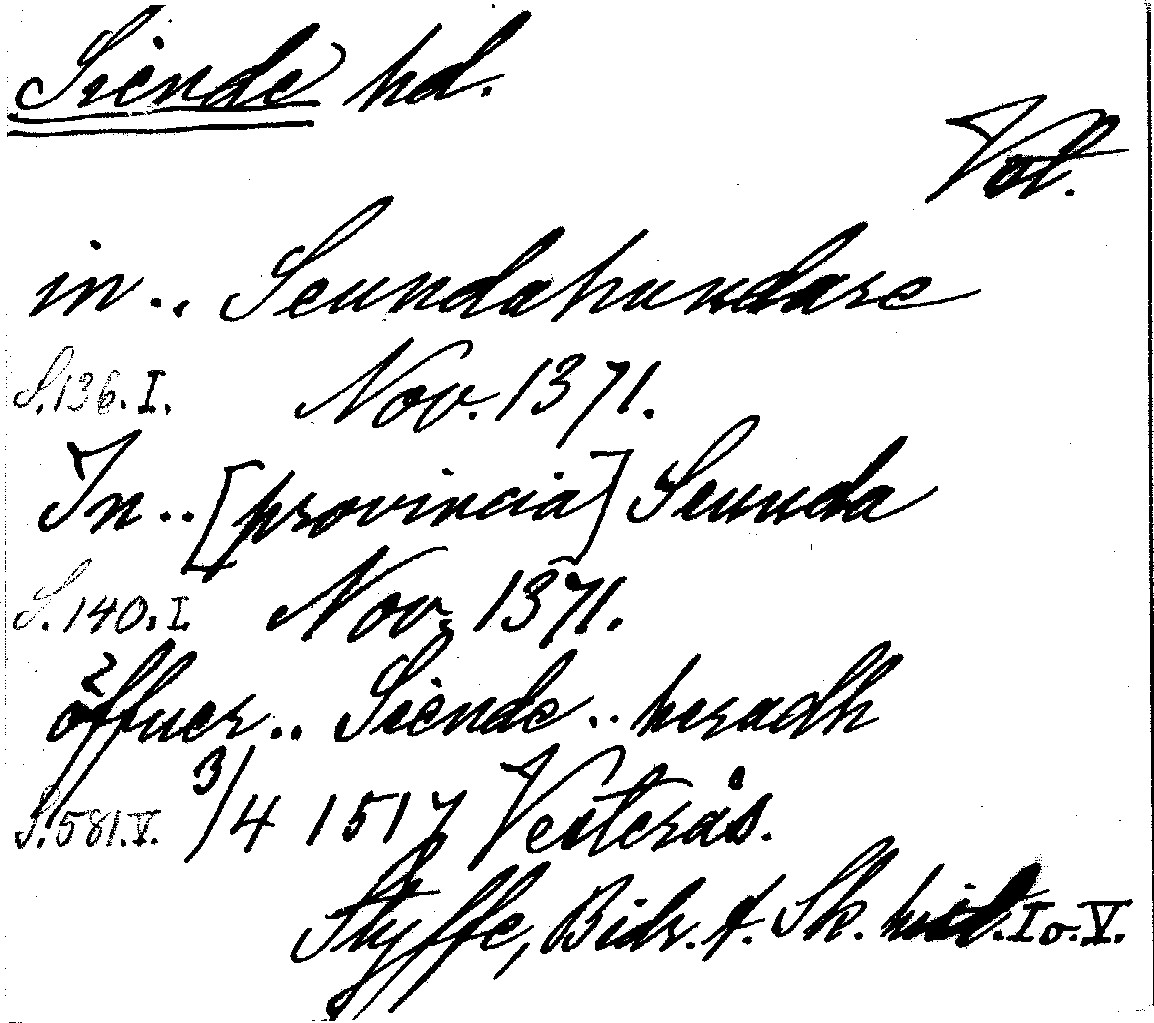 Siende hd.
Vstl.
in.. Seundahundare
S.136.I. Nov. 1371.
In.. [provincia] Seunda
S.140.I. Nov. 1371.
öffuer.. Siende.. heradh
S.581.V. 3/4 1517 Vesterås.
Styffe, Bidr. t. Sk. hist. I o. V.